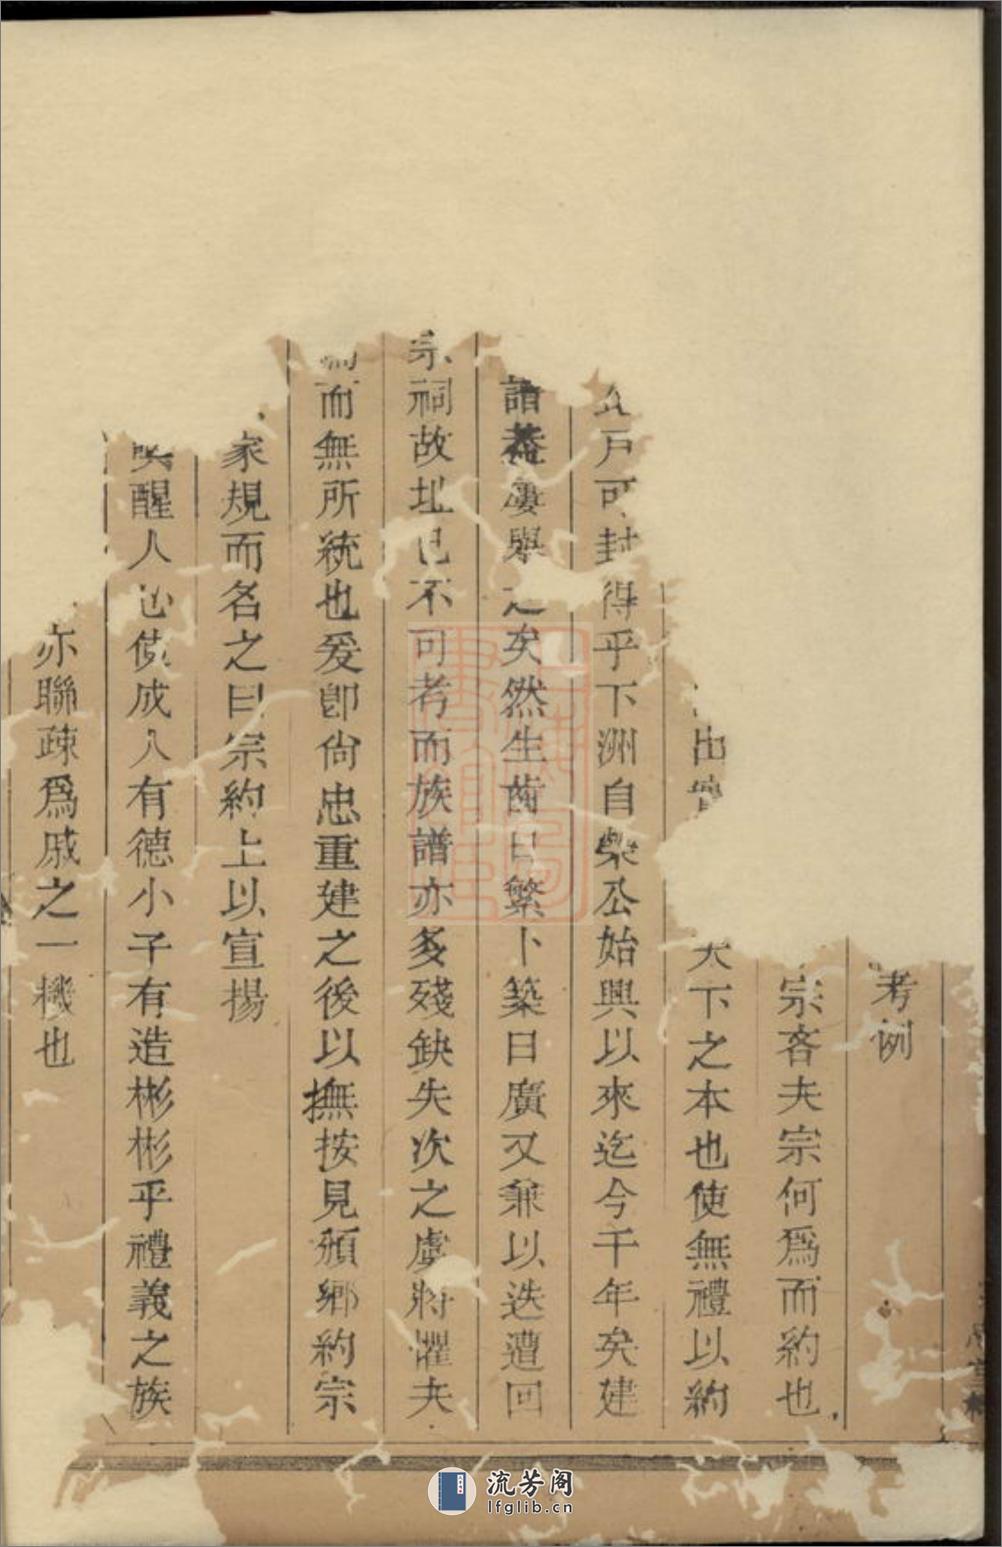 考例
宗吝夫宗何爲而約也
出 天下之本也使無禮以約
戸可封得乎下洲自樂公始興以來迄今千年矣建
譜 淒舉之矣然生齒日繁卜築日廣又兼以迭遭回
宗祠故址已不可考而族譜亦多殘缺失次之虞將懼夫
而無所統也爰卽尙忠重建之後以撫按見頒鄉約宗
家規而名之曰宗約上以宣揚
醒人心使成人有德小子有造彬彬乎禮義之族
亦聯疎爲戚之一機也
流芳阁
lfglib.cn